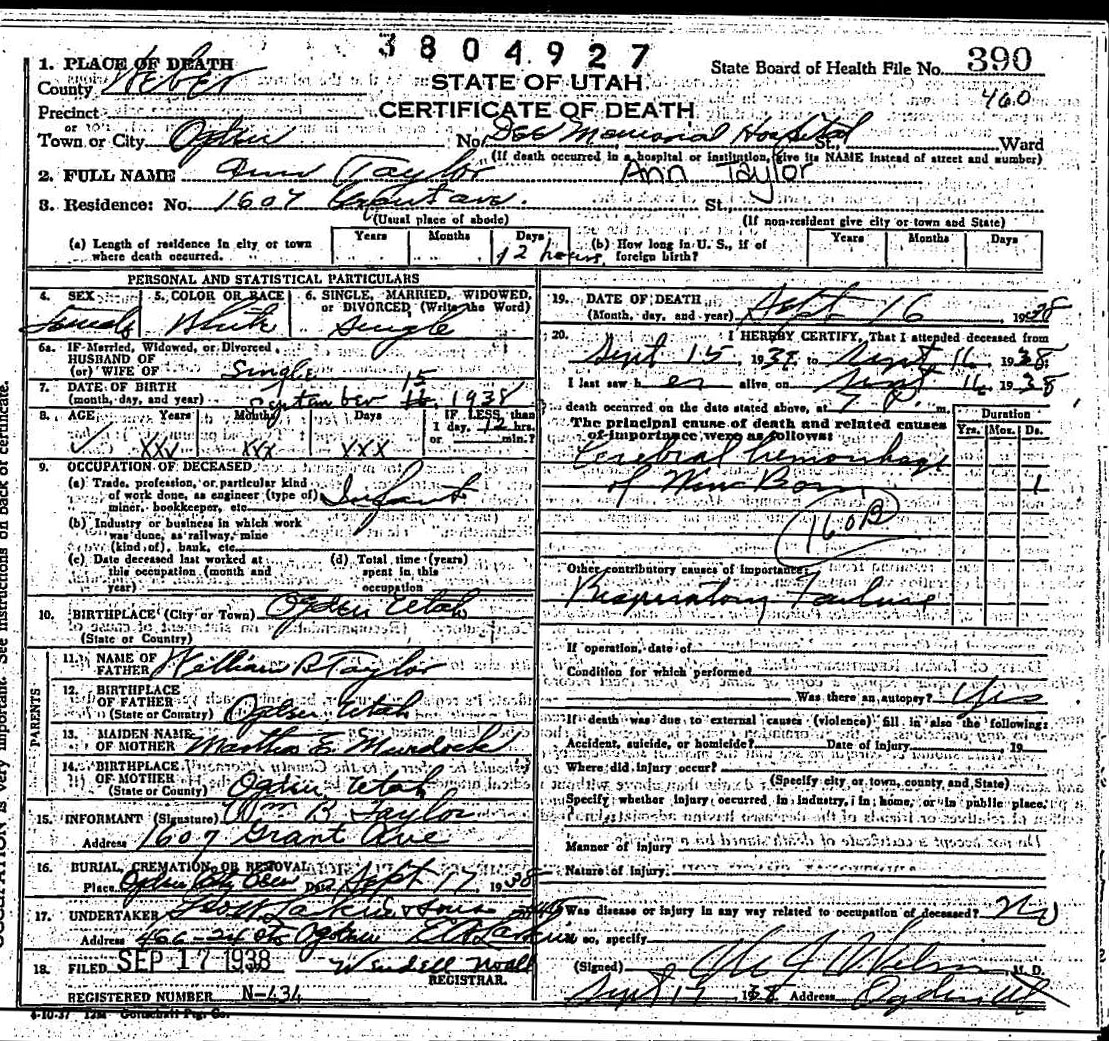 3804927
1. PLACE OF DEATH
County Weber
STATE OF UTAH
CERTIFICATE OF DEATH
State Board of Health File No. 390
460
Precinct
or
Town or City Ogden No. Dee Memorial Hospital St., Ward
(If death occurred in a hospital or institution, give its NAME instead of street and number)
2. FULL NAME Ann Taylor Ann Taylor
3. Residence: No. 1607 Grant ave. St.
(Usual place of abode) (If non-resident give city or town and State)
(a) Length of residence in city or town where death occurred. Years Months Days 12 hours
(b) How long in U. S., if of foreign birth? Years Months Days
PERSONAL AND STATISTICAL PARTICULARS
4. SEX Female
5. COLOR OR RACE White
6. SINGLE, MARRIED, WIDOWED, or DIVORCED, (Write the Word) Single
6a. IF Married, Widowed, or Divorced
HUSBAND OF
(or) WIFE OF Single
7. DATE OF BIRTH
(month, day, and year) September 15 1938
8. AGE Years XXX Months XXX Days XXX IF LESS than 1 day, 12 hrs. or min.?
9. OCCUPATION OF DECEASED
(a) Trade, profession, or particular kind
of work done, as engineer (type of)
miner, bookkeeper, etc. Infant
(b) Industry or business in which work
was done, as railway, mine
(kind of), bank, etc.
(c) Date deceased last worked at
this occupation (month and
year)
(d) Total time (years)
spent in this
occupation
10. BIRTHPLACE (City or Town) Ogden Utah
(State or Country)
PARENTS
11. NAME OF
FATHER William B Taylor
12. BIRTHPLACE
OF FATHER
(State or Country) Ogden Utah
13. MAIDEN NAME
OF MOTHER Martha E. Murdock
14. BIRTHPLACE
OF MOTHER
(State or Country) Ogden Utah
15. INFORMANT (Signature) Wm B Taylor
Address 1607 Grant Ave
16. BURIAL, CREMATION, OR REMOVAL
Place Ogden City Date Sept 17 1938
17. UNDERTAKER Larkin & Sons
Address 466-24 St Ogden
18. FILED SEP 17 1938 Wendell Noall
REGISTRAR.
REGISTERED NUMBER N-434
4-10-37 12M
19. DATE OF DEATH
(Month, day, and year) Sept 16 1938
20. I HEREBY CERTIFY, That I attended deceased from
Sept 15 1938 to Sept 16 1938
I last saw her alive on Sept 16 1938
death occurred on the date stated above, at 7 P. m.
The principal cause of death and related causes
of importance were as follows:
Duration
Yrs. Mos. Ds.
Cerebral hemorrhage
of New Born 1
160B
Other contributory causes of importance:
Respiratory Failure
If operation, date of
Condition for which performed
Was there an autopsy? Yes
If death was due to external causes (violence) fill in also the following:
Accident, suicide, or homicide? Date of injury 19
Where did injury occur?
(Specify city or town, county and State)
Specify whether injury occurred in industry, in home, or in public place.
Manner of injury
Nature of injury
Was disease or injury in any way related to occupation of deceased? No
so, specify
(Signed) Wilson M. D.
Sept 17 1938 Address Ogden Ut
OCCUPATION is very important. See instructions on back of certificate.